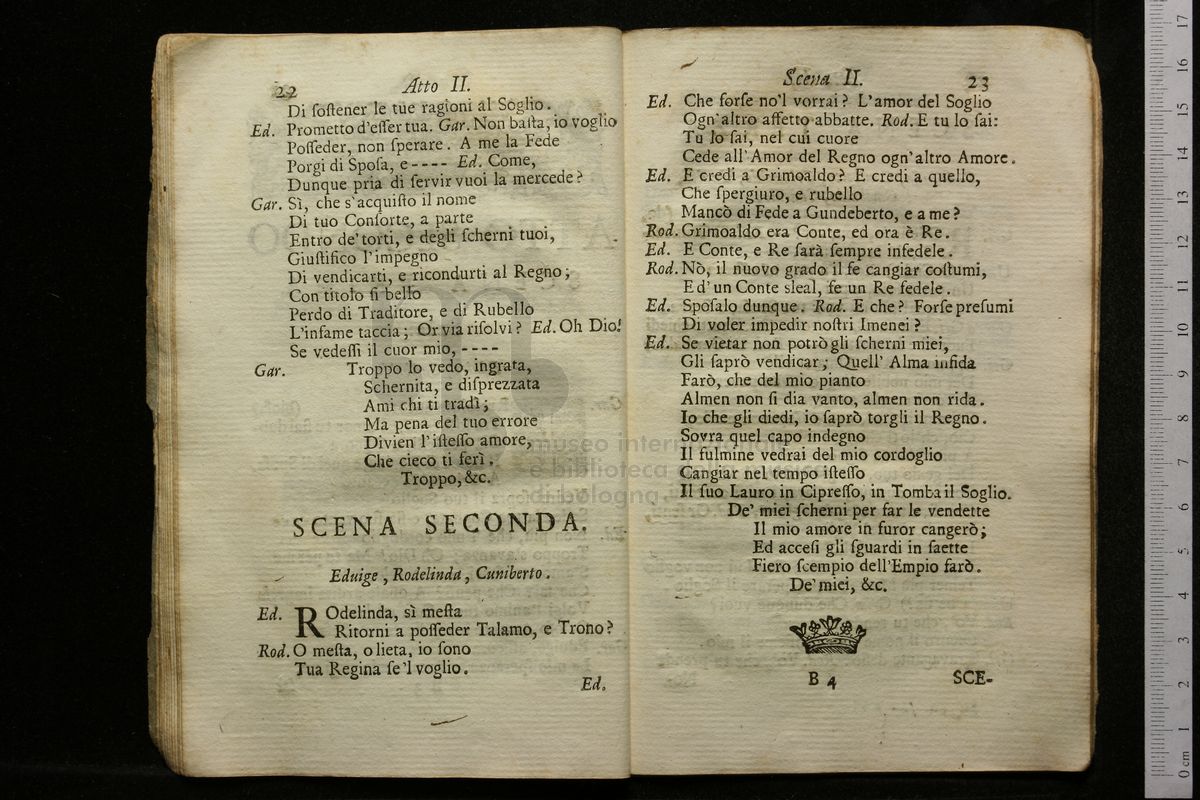 22 Atto II.
Di ſoſtener le tue ragioni al Soglio.
Ed. Prometto d'eſſer tua. Gar. Non baſta, io voglio
Poſſeder, non ſperare. A me la Fede
Porgi di Spoſa, e ---- Ed. Come,
Dunque pria di ſervir vuoi la mercede?
Gar. Sì, che s'acquiſto il nome
Di tuo Conſorte, a parte
Entro de' torti, e degli ſcherni tuoi,
Giuſtifico l'impegno
Di vendicarti, e ricondurti al Regno;
Con titolo ſi bello
Perdo di Traditore, e di Rubello
L'infame taccia; Or via riſolvi? Ed. Oh Dio!
Se vedeſſi il cuor mio, ----
Gar. Troppo lo vedo, ingrata,
Schernita, e diſprezzata
Ami chi ti tradì;
Ma pena del tuo errore
Divien l'iſteſſo amore,
Che cieco ti ferì.
Troppo, &c.
SCENA SECONDA.
Eduige, Rodelinda, Cuniberto.
Ed. ROdelinda, sì meſta
Ritorni a poſſeder Talamo, e Trono?
Rod. O meſta, o lieta, io ſono
Tua Regina ſe'l voglio.
Ed.
Scena II. 23
Ed. Che forſe no'l vorrai? L'amor del Soglio
Ogn'altro affetto abbatte. Rod. E tu lo ſai:
Tu lo ſai, nel cui cuore
Cede all'Amor del Regno ogn'altro Amore.
Ed. E credi a Grimoaldo? E credi a quello,
Che ſpergiuro, e rubello
Mancò di Fede a Gundeberto, e a me?
Rod. Grimoaldo era Conte, ed ora è Re.
Ed. E Conte, e Re ſarà ſempre infedele.
Rod. Nò, il nuovo grado il fe cangiar coſtumi,
E d'un Conte sleal, fe un Re fedele.
Ed. Spoſalo dunque. Rod. E che? Forſe preſumi
Di voler impedir noſtri Imenei?
Ed. Se vietar non potrò gli ſcherni miei,
Gli ſaprò vendicar; Quell' Alma infida
Farò, che del mio pianto
Almen non ſi dia vanto, almen non rida.
Io che gli diedi, io ſaprò torgli il Regno.
Sovra quel capo indegno
Il fulmine vedrai del mio cordoglio
Cangiar nel tempo iſteſſo
Il ſuo Lauro in Cipreſſo, in Tomba il Soglio.
De' miei ſcherni per far le vendette
Il mio amore in furor cangerò;
Ed acceſi gli ſguardi in ſaette
Fiero ſcempio dell'Empio farò.
De' miei, &c.
B 4 SCE-
museo internazionale
e biblioteca della musica
di bologna
0 cm 1 2 3 4 5 6 7 8 9 10 11 12 13 14 15 16 17